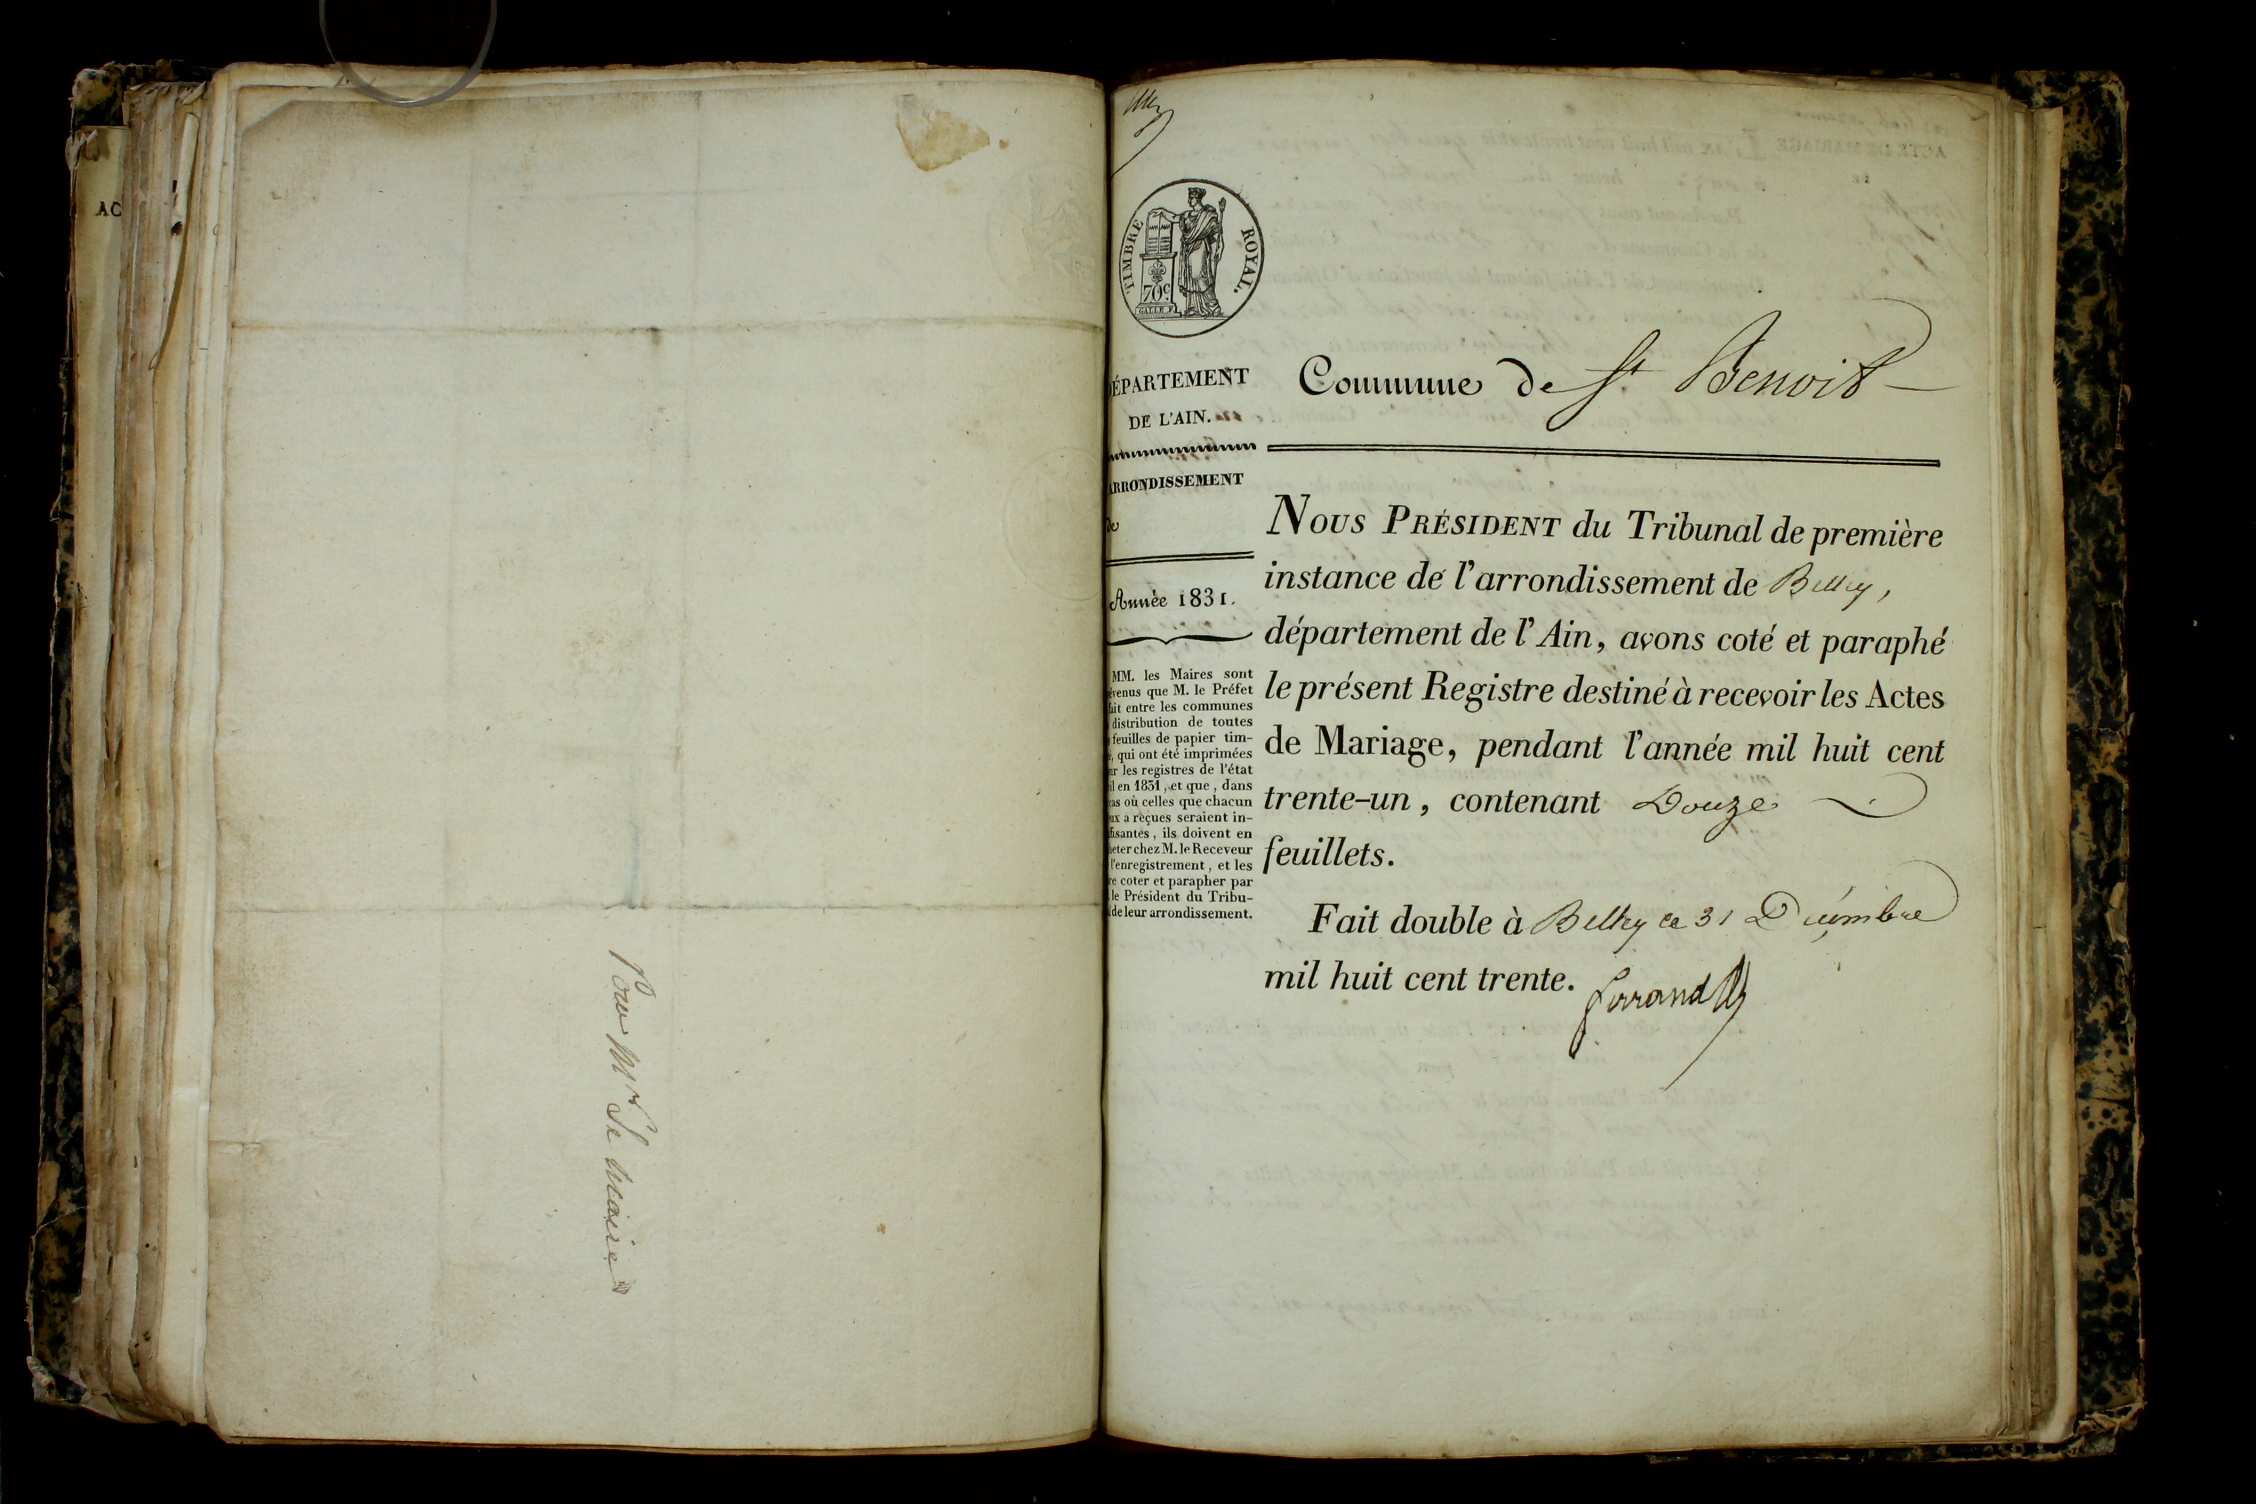 AC
Pour Mr Le Maire
TIMBRE ROYAL.
70c
GALLE F.
DÉPARTEMENT
DE L'AIN.
ARRONDISSEMENT
de
Année 1831.
MM. les Maires sont
évenus que M. le Préfet
fait entre les communes
distribution de toutes
feuilles de papier tim-
é, qui ont été imprimées
ur les registres de l'état
il en 1831, et que, dans
cas où celles que chacun
ux a reçues seraient in-
fisantes, ils doivent en
heter chez M. le Receveur
l'enregistrement, et les
re coter et parapher par
le Président du Tribu-
l de leur arrondissement.
Commune de St Benoit
NOUS PRÉSIDENT du Tribunal de première
instance de l'arrondissement de Belley,
département de l'Ain, avons coté et paraphé
le présent Registre destiné à recevoir les Actes
de Mariage, pendant l'année mil huit cent
trente-un, contenant Douze
feuillets.
Fait double à Belley ce 31 Décembre
mil huit cent trente.